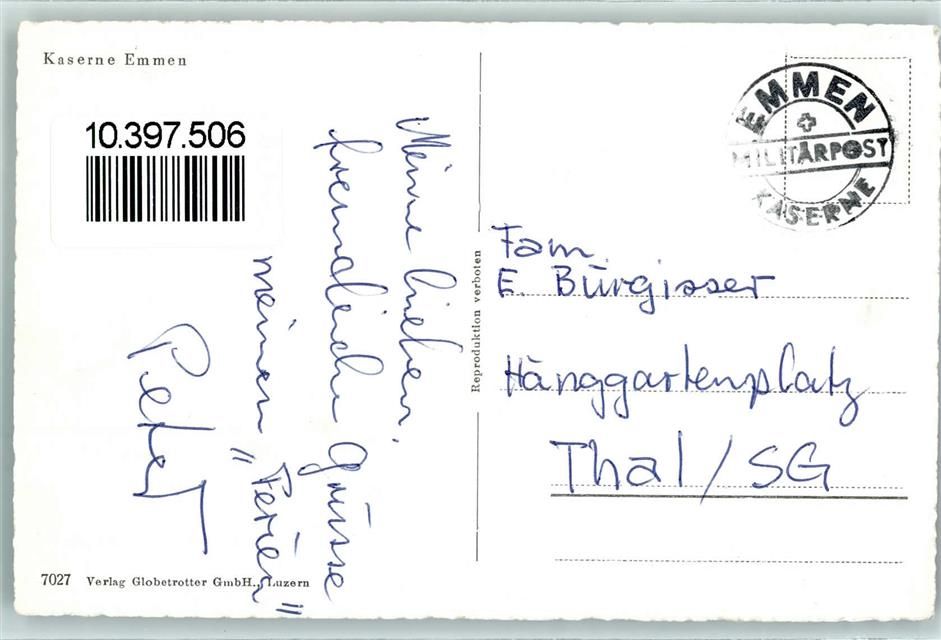 Kaserne Emmen
10.397.506
Meine lieben,
freundliche Grüsse
meinen "Ferien"
Peter
7027 Verlag Globetrotter GmbH., Luzern
Reproduktion verboten
EMMEN
MILITÄRPOST
KASERNE
Fam.
E. Bürgisser
Hänggartenplatz
Thal/SG